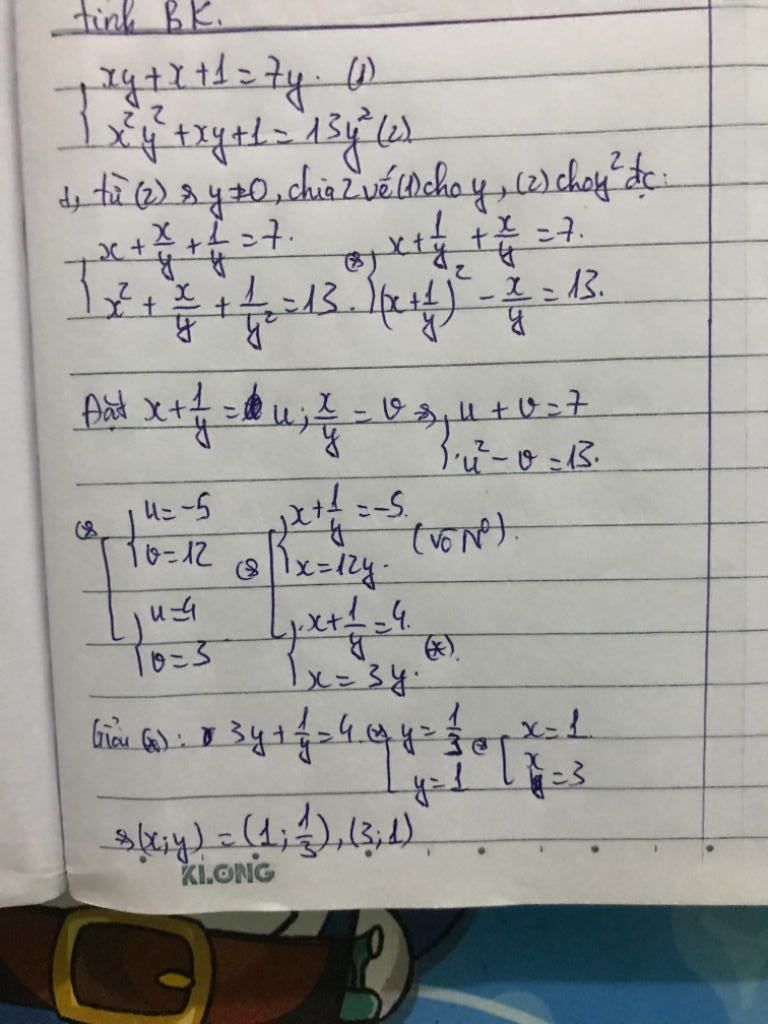 tỉnh BK.
{ xy + x + 1 = 7y. (1)
x²y² + xy + 1 = 13y² (2)
d, từ (2) => y ≠ 0, chia 2 vế (1) cho y, (2) cho y² đc:
{ x + x/y + 1/y = 7. <=> { x + 1/y + x/y = 7.
x² + x/y + 1/y² = 13. (x + 1/y)² - x/y = 13.
Đặt x + 1/y = u; x/y = v => { u + v = 7
u² - v = 13.
<=> [ { u = -5 <=> [ { x + 1/y = -5.
v = 12 x = 12y. (vô N⁰).
{ u = 4 { x + 1/y = 4. (*).
v = 3 x = 3y.
Giải (*): 3y + 1/y = 4 <=> [ y = 1/3 <=> [ x = 1.
y = 1 x = 3
=> (x; y) = (1; 1/3), (3; 1)
KLONG